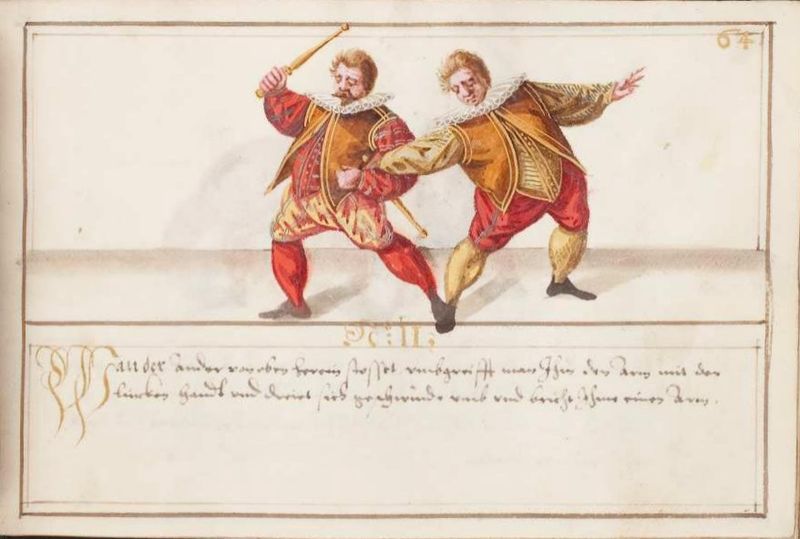 64
N: 11.
Wan der ander von oben herein stosset, umbgreifft man Ihm den Arm mit der
lincken handt vnd dreiet sich geschwinde vmb vnd bricht Ihme einen Arm.